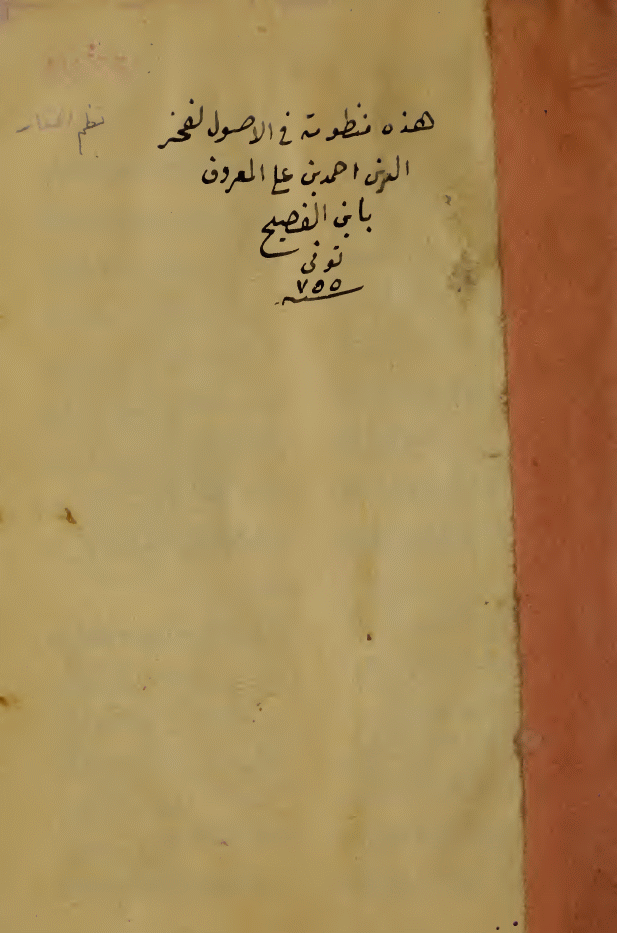 هذه منظومة في الاصول لفخر
الدين احمد بن علي المعروف
بابن الفصيح
توفى
سنة ٧٥٥
نظم المنار